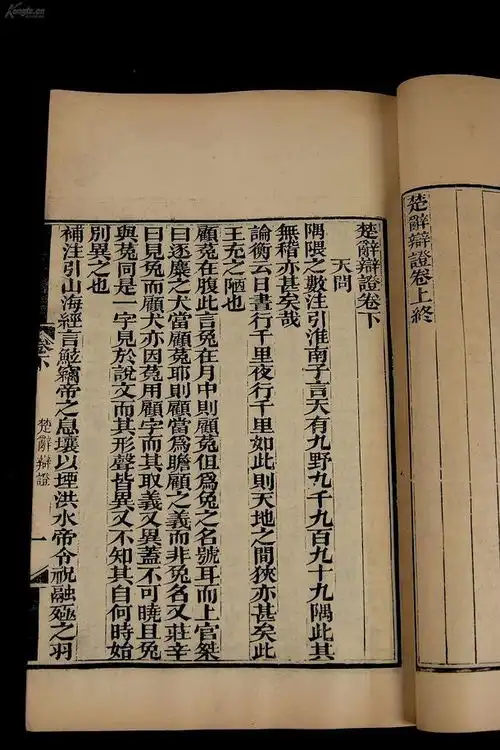 楚辭辯證卷上終
楚辭辯證卷下
天問
隅隈之數注引淮南子言天有九野九千九百九十九隅此其
無稽亦甚矣哉
論衡云日晝行千里夜行千里如此則天地之間狹亦甚矣此
王充之陋也
顧菟在腹此言兔在月中則顧菟但爲兔之名號耳而上官桀
曰逐麋之犬當顧菟耶則顧當爲瞻顧之義而非兔名又莊辛
曰見兔而顧犬亦因菟用顧字而其取義又異蓋不可曉且兔
與菟同是一字見於說文而其形聲皆異又不知其自何時始
別異之也
補注引山海經言鮌竊帝之息壤以堙洪水帝令祝融殛之羽
卷下
楚辭辯證
一
Kongfz.cn